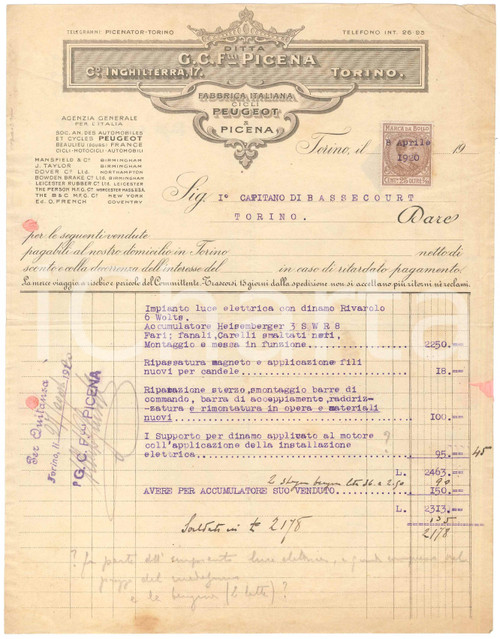 TELEGRAMMI PICENATOR-TORINO
TELEFONO INT. 26-25
DITTA
G.C. Flli PICENA
Co INGHILTERRA, 17.
TORINO.
FABBRICA ITALIANA
CICLI
PEUGEOT
PICENA
AGENZIA GENERALE
PER L'ITALIA
SOC. AN. DES AUTOMOBILES
ET CYCLES PEUGEOT
BEAULIEU (DOUBS) FRANCE
CICLI-MOTOCICLI-AUTOMOBILI
MANSFIELD & Co BIRMINGHAM
J. TAYLOR BIRMINGHAM
DOVER Co LTD. NORTHAMPTON
BOWDEN BRAKE Co LTD. BIRMINGHAM
LEICESTER RUBBER Co LTD. LEICESTER
THE PERSON M.F.G. Co WORCESTER MASS. U.S.A.
THE B & C M.F.G. Co NEW YORK
Ed. O. FRENCH COVENTRY
MARCA DA BOLLO
8 Aprile
1920
Torino, il 19
Sig. I° CAPITANO DI BASSECOURT
TORINO.
Dare
per le seguenti vendute
pagabili al nostro domicilio in Torino netto di
sconto e colla decorrenza dell'interesse del in caso di ritardato pagamento.
La merce viaggia a rischio e pericolo del Committente. Trascorsi 15 giorni dalla spedizione non si accettano più ritorni nè reclami.
Impianto luce elettrica con dinamo Rivarolo
6 Wolts.
Accumulatore Heisemberger 3 S W R 8
Fari; fanali, Carelli smaltati neri,
Montaggio e messa in funzione. 2250.
Ripassatura magneto e applicazione fili
nuovi per candele. 18.
Riparazione sterzo, smontaggio barre di
commando, barra di accoppiamento, raddriz-
-zatura e rimontatura in opera e materiali
nuovi 100.
I Supporto per dinamo applivato al motore
coll'applicazione della installazione
elettrica. 95. 45
L. 2463.
90
AVERE PER ACCUMULATORE SUO VENDUTO. 150.
L. 2313.
135
2178
Saldato in Lo 2178
Per Quitanza
Torino, li
G.C. Flli PICENA
? fa parte dell' impianto luce elettrica, e quindi compreso nel
prezzo del medesimo
e la benzina (2 latte) ?